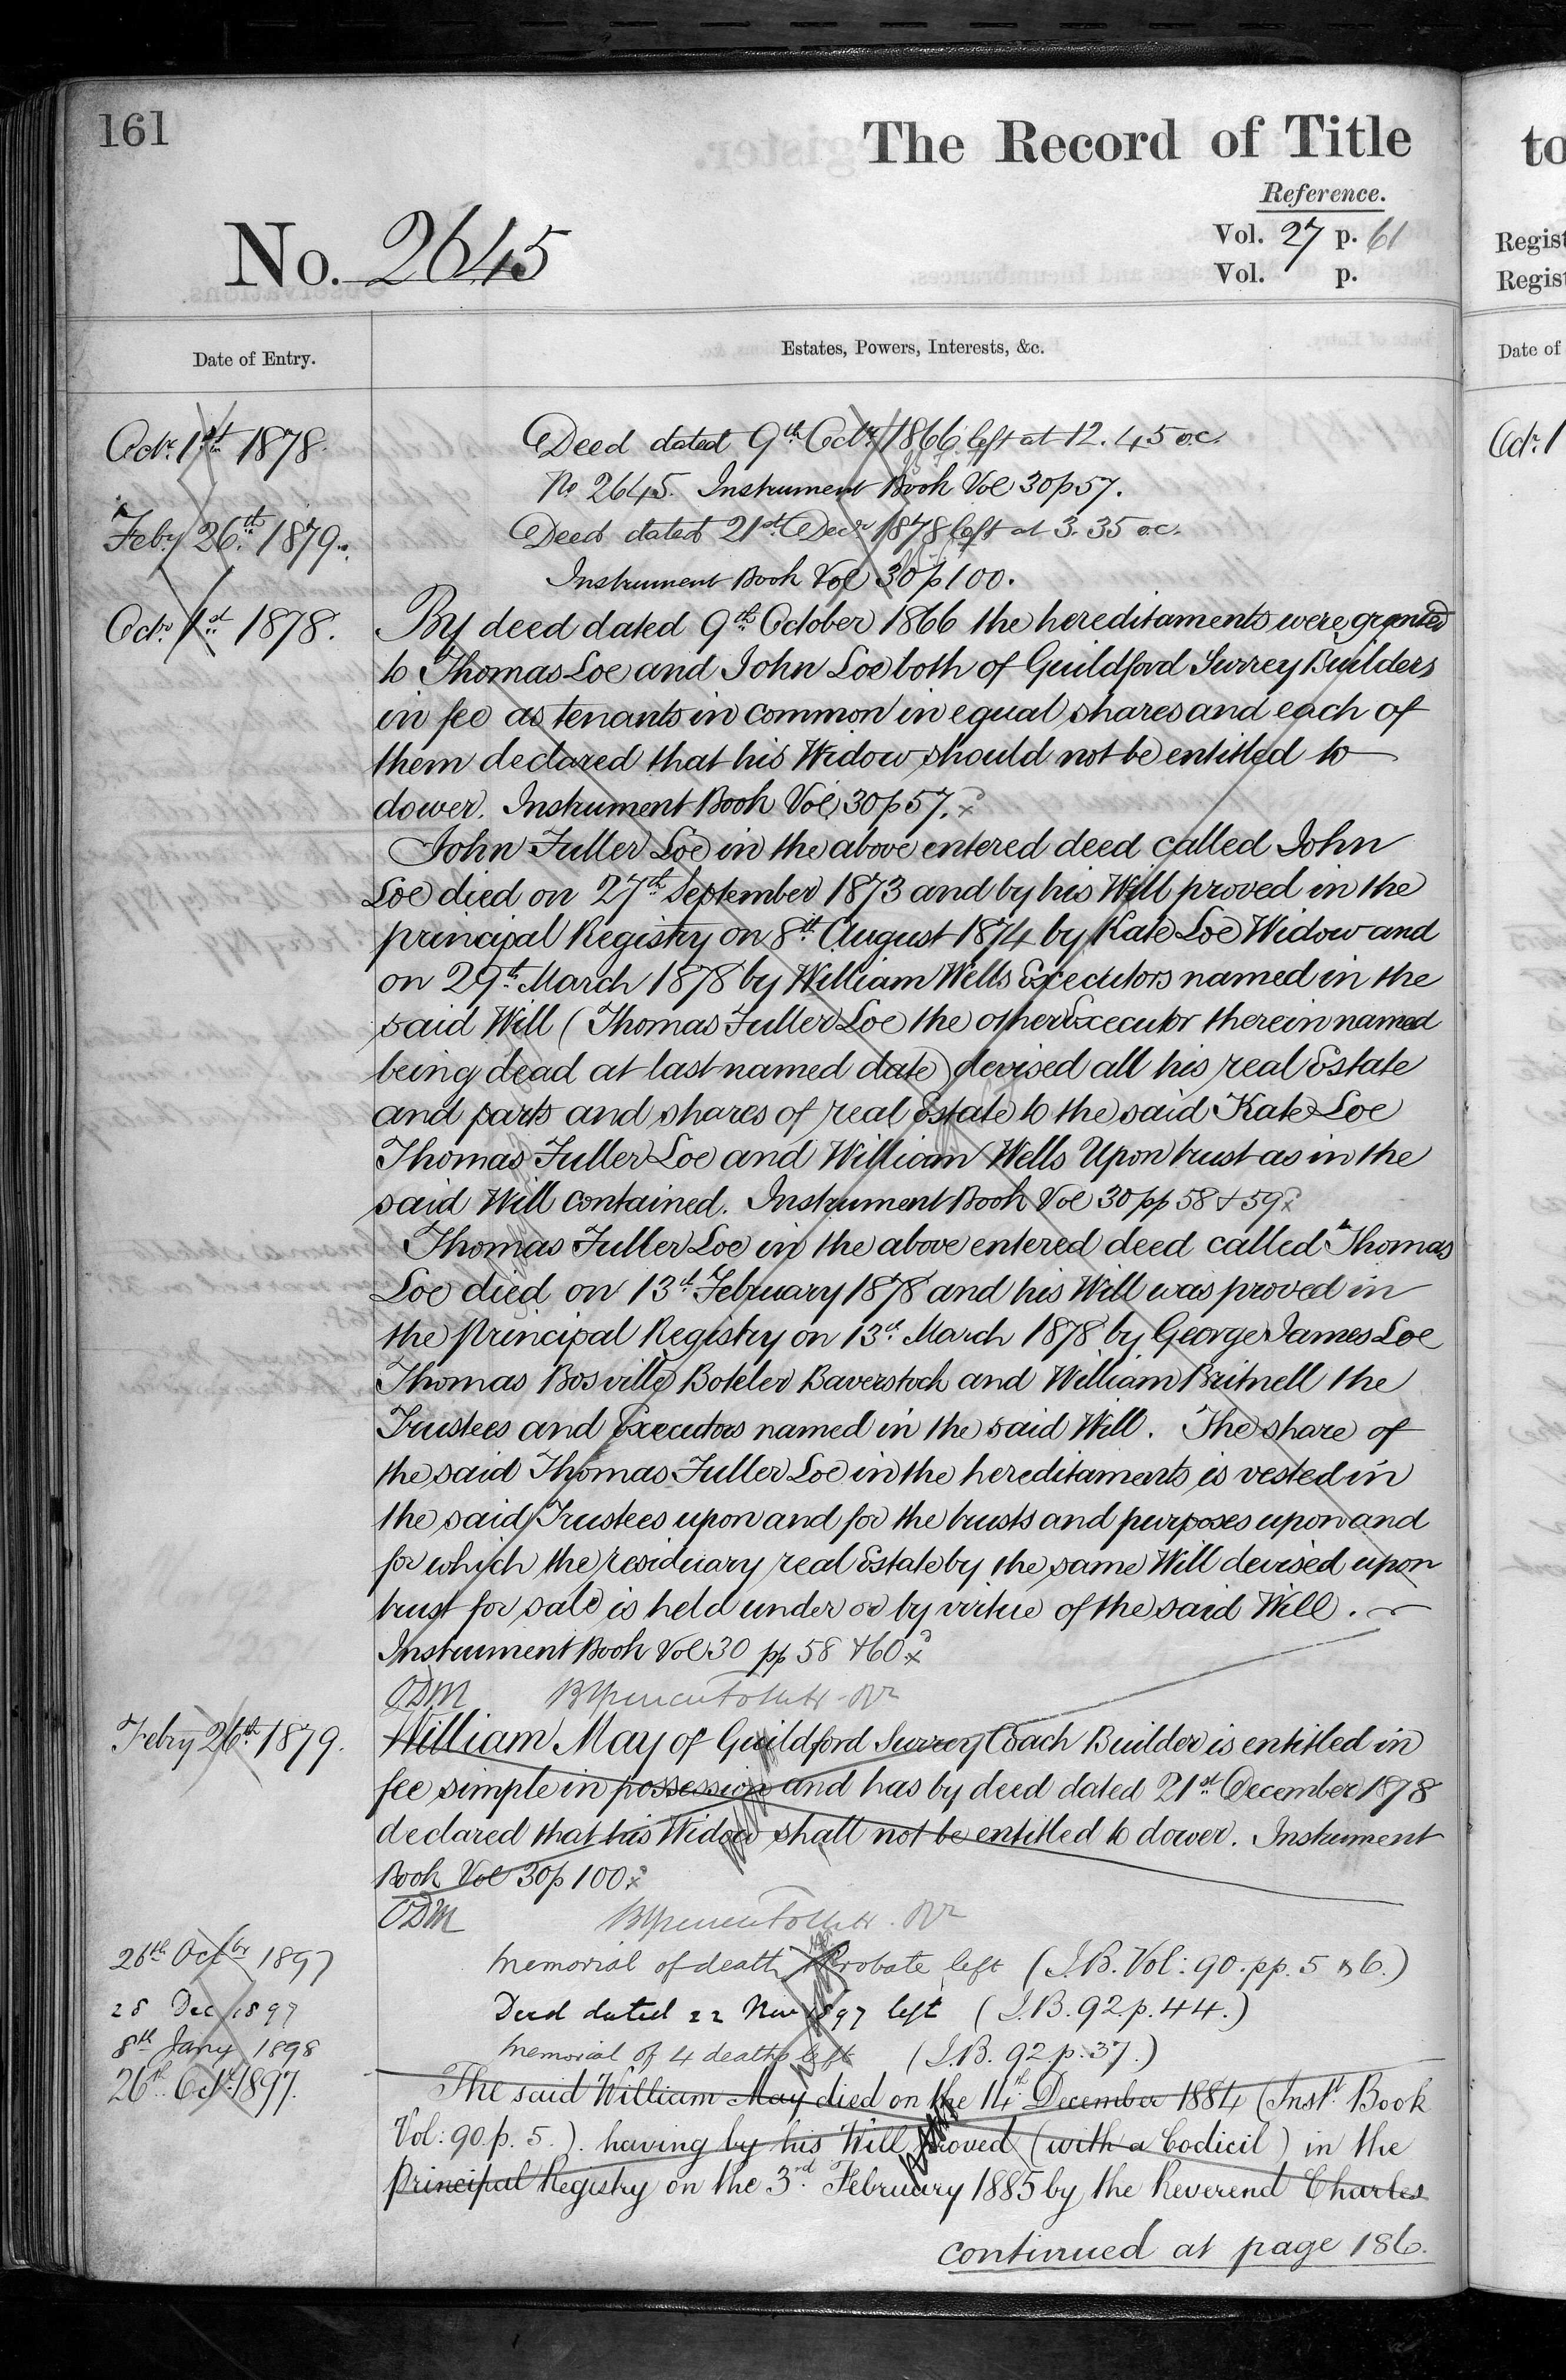 161
The Record of Title
to
Reference.
Vol. 27 p. 61
Vol. p.
No. 2645
Regist
Regist
Date of Entry.
Estates, Powers, Interests, &c.
Date of
Octr. 1st 1878. Deed dated 9th Octr. 1866 left at 12.45 o.c.
No 2645. Instrument Book Vol 30 p 57.
Feby 26th 1879. Deed dated 21st Decr 1878 left at 3.35 o.c.
Instrument Book Vol 30 p 100.
Octr. 1st 1878. By deed dated 9th October 1866 the hereditaments were granted
to Thomas Loe and John Loe both of Guildford Surrey Builders
in fee as tenants in common in equal shares and each of
them declared that his Widow should not be entitled to
dower. Instrument Book Vol 30 p 57.
John Fuller Loe in the above entered deed called John
Loe died on 27th September 1873 and by his Will proved in the
principal Registry on 8th August 1874 by Kate Loe Widow and
on 29th March 1878 by William Wells Executors named in the
said Will (Thomas Fuller Loe the other Executor therein named
being dead at last named date) devised all his real Estate
and parts and shares of real Estate to the said Kate Loe
Thomas Fuller Loe and William Wells Upon trust as in the
said Will contained. Instrument Book Vol 30 pp 58 & 59
Thomas Fuller Loe in the above entered deed called Thomas
Loe died on 13th February 1878 and his Will was proved in
the Principal Registry on 13th March 1878 by George James Loe
Thomas Bosville Boteler Baverstock and William Britnell the
Trustees and Executors named in the said Will. The share of
the said Thomas Fuller Loe in the hereditaments is vested in
the said Trustees upon and for the trusts and purposes upon and
for which the residuary real Estate by the same Will devised upon
trust for sale is held under or by virtue of the said Will.
Instrument Book Vol 30 pp 58 & 60
ODM
Febry 26th 1879. William May of Guildford Surrey Coach Builder is entitled in
fee simple in possession and has by deed dated 21st December 1878
declared that his Widow shall not be entitled to dower. Instrument
Book Vol 30 p 100
ODM
26th Octbr 1897 Memorial of death & Probate left (I.B. Vol: 90. pp. 5 & 6.)
28 Dec 1897 Deed dated 22 Nov 1897 left (I.B. 92. p. 44.)
8th Jany 1898 Memorial of 4 deaths left (I.B. 92 p. 37.)
26th Octr. 1897. The said William May died on the 14th December 1884 (Inst. Book
Vol: 90 p. 5.). having by his Will proved (with a Codicil) in the
Principal Registry on the 3rd February 1885 by the Reverend Charles
continued at page 186.
Octr. 1